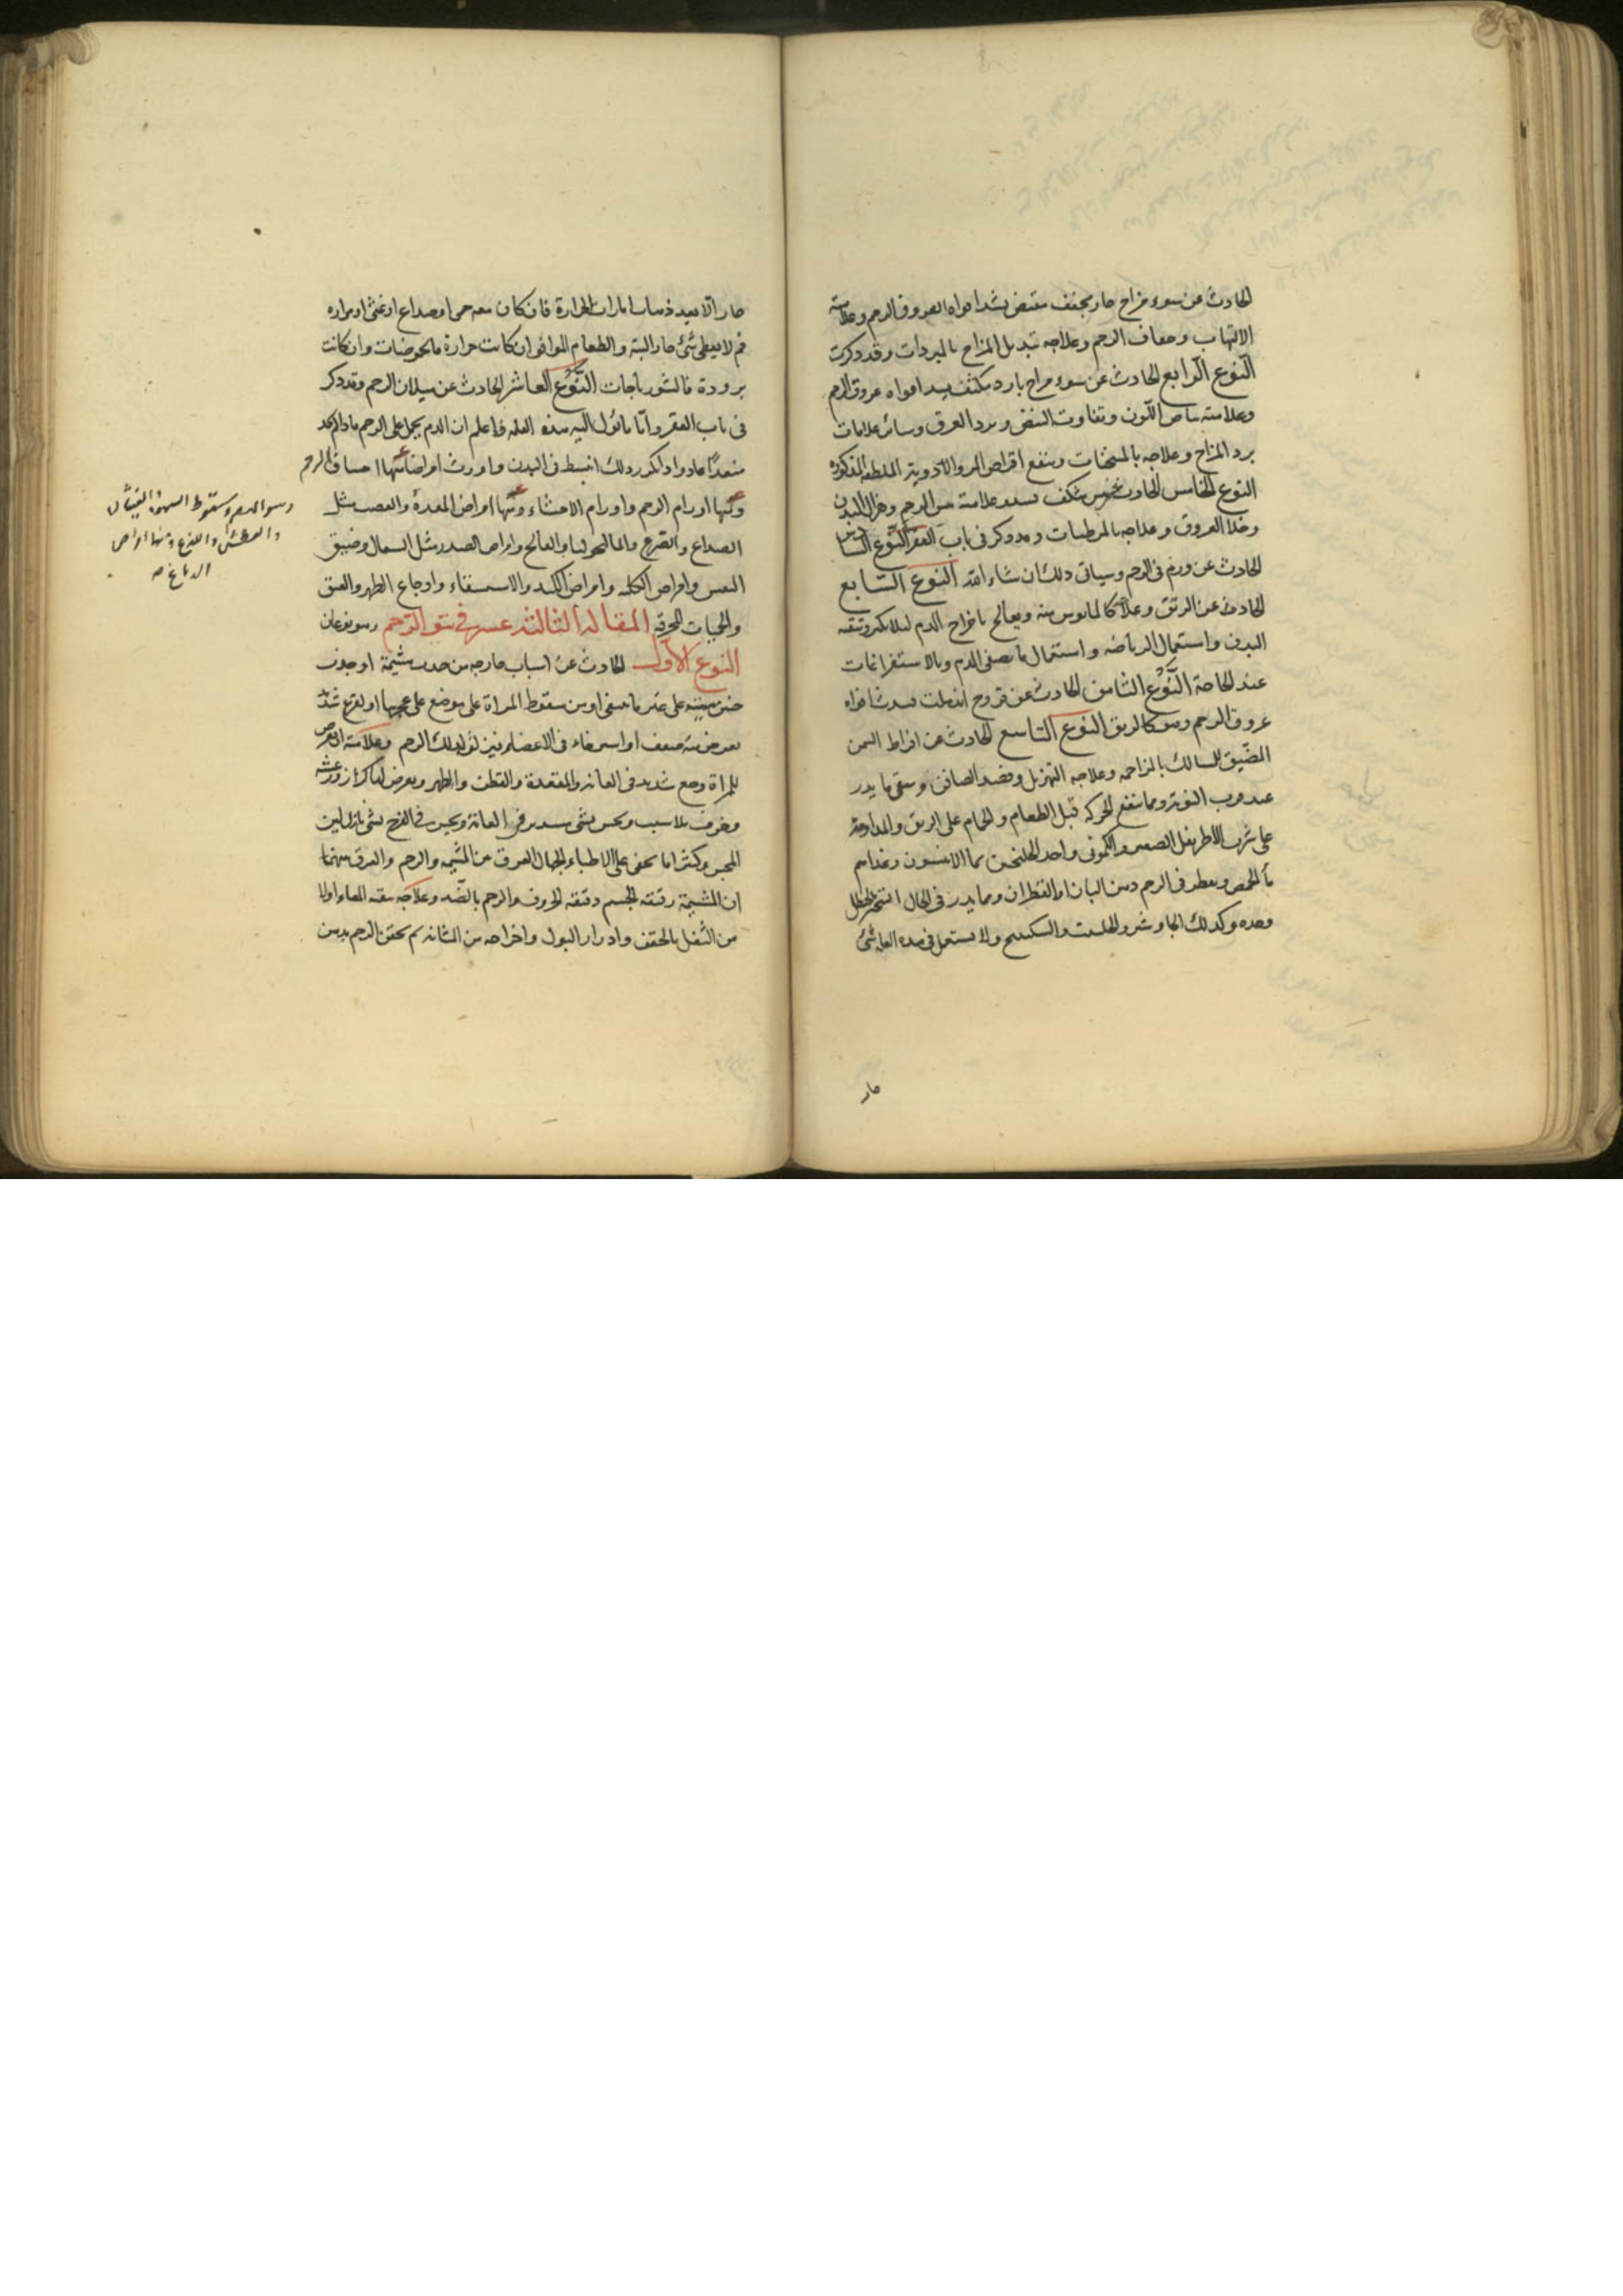 الحادث عن سوء مزاج حار مجفف مقبض يشد افواه العروق الرحم وعلامته
الالتهاب وجفاف الرحم وعلاجه تبديل المزاج بالمبردات وقد ذكرت
النوع الرابع الحادث عن سوء مزاج بارد مكثف يسد افواه عروق الرحم
وعلامته بياض اللون وتفاوت النبض وبرد العرق وسائر علامات
برد المزاج وعلاجه بالمسخنات وينفع اقراص المر والادوية الملطفة المذكورة
النوع الخامس الحادث عن يبس مكثف يسد علامته يبس الرحم وهزال البدن
وخلا العروق وعلاجه بالمرطبات وقد ذكر فى باب العقر النوع السادس
الحادث عن ورم فى الرحم وسياتى ذلك ان شاء الله النوع السابع
الحادث عن الرتق وعلاجه كالمايوس منه ويعالج باخراج الدم لئلا يكثر وتنقيه
البدن واستعمال الرياضه واستعمال ما يصفى الدم وبالاستفراغات
عند الحاجة النوع الثامن الحادث عن قروح اندملت فسدت افواه
عروق الرحم وهو كالرتق النوع التاسع الحادث عن افراط السمن
المضيق للمسالك بالمزاحمه وعلاجه التهزيل وفصد الصافن وسقى ما يدر
عند قرب النوبة ومما ينفع الحركه قبل الطعام والحمام على الريق والمداومة
على شرب الاطريفل الصغير والكمونى واخذ الجلنجبين بماء الانيسون وغذاهم
ماء الحمص ويقطر فى الرحم دهن البان او القطران ومما يدر فى الحال شحم الحنظل
وحده وكذلك الجاوشير والحلتيت والسكبينج ولا يستعمل فى هذه العلة شئ
حار
حار الا بعد ذهاب امارات الحرارة فان كان معه حمى او صداع او غثى او مراره
فم لا يعطى شئ حار البتة والطعام الموافق ان كانت حرارة فالحموضات وان كانت
برودة فالشورباجات النوع العاشر الحادث عن ميلان الرحم وقد ذكر
فى باب العقر واما ما تؤل اليه هذه العلة فاعلم ان الدم يحمل على الرحم فاذا لم يجد
منفذًا عاد واذا تكرر ذلك انبسط فى البدن واورث امراضا منها اختناق الرحم
ومنها اورام الرحم واورام الاحشاء ومنها امراض المعدة والعصب مثل
الصداع والصرع والمالنخوليا والفالج وامراض الصدر مثل السعال وضيق
النفس وامراض الكلى وامراض الكبد والاستسقاء واوجاع الظهر والعنق
والحميات المحرقه المقالة الثالثة عشر فى نتو الرحم وهو نوعان
النوع الاول الحادث عن اسباب خارجه من جذب مشيمة او جذب
جنين ميت على غير ما ينبغى او من سقوط المراة على موضع على عجزها او لفزع شديد
يعرض منه ضعف او استرخاء فى الاعضاء فينزلق لذلك الرحم وعلامته ان يعرض
للمراة وجع شديد فى العانة والمقعدة والقطن والظهر ويعرض لها كزاز ورعشة
وخوف بلا سبب وتحس بشى مستدير فى العانة ويحس فى الفرج بشئ نازل لين
المجس وكثيرا ما يخفى على الاطباء الجهال الفرق بين المشيمه والرحم والفرق بينهما
ان المشيمة رقيقه الجسم دقيقه الحروف والرحم بالضد وعلاجه تنقية المعاء اولا
من الثفل بالحقن وادرار البول واخراجه من المثانة ثم يحقن الرحم بدهن
وسوء الهضم وسقوط الشهوة والغثيان
والعطش واللذع ومنها امراض
الدماغ صح